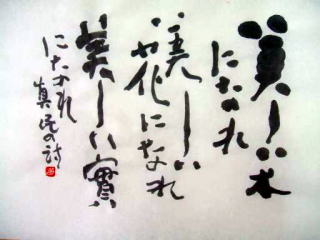 美しい木
になれ
美しい
花になれ
美しい實
になれ
真民の詩